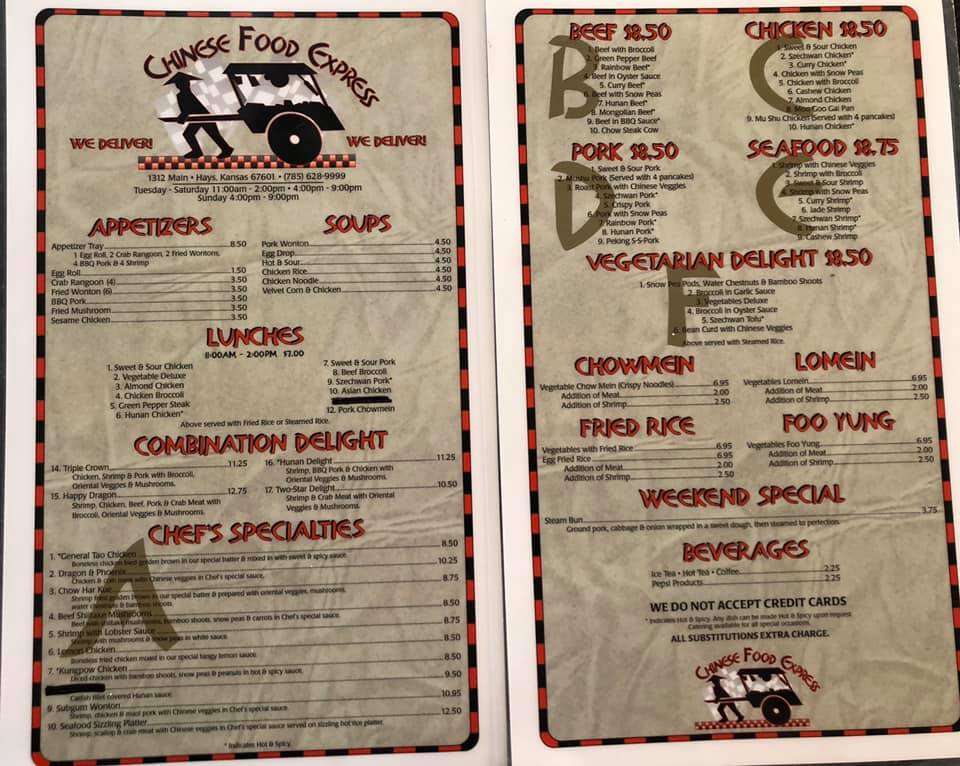 CHINESE FOOD EXPRESS
WE DELIVER! WE DELIVER!
1312 Main • Hays, Kansas 67601 • (785) 628-9999
Tuesday - Saturday 11:00am - 2:00pm • 4:00pm - 9:00pm
Sunday 4:00pm - 9:00pm
APPETIZERS
Appetizer Tray 8.50
1 Egg Roll, 2 Crab Rangoon, 2 Fried Wontons,
4 BBQ Pork & 4 Shrimp
Egg Roll 1.50
Crab Rangoon (4) 3.50
Fried Wonton (6) 3.50
BBQ Pork 3.50
Fried Mushroom 3.50
Sesame Chicken 3.50
SOUPS
Pork Wonton 4.50
Egg Drop 4.50
Hot & Sour 4.50
Chicken Rice 4.50
Chicken Noodle 4.50
Velvet Corn & Chicken 4.50
LUNCHES
8:00AM - 2:00PM $7.00
1. Sweet & Sour Chicken
2. Vegetable Deluxe
3. Almond Chicken
4. Chicken Broccoli
5. Green Pepper Steak
6. Hunan Chicken*
7. Sweet & Sour Pork
8. Beef Broccoli
9. Szechwan Pork*
10. Asian Chicken
12. Pork Chowmein
Above served with Fried Rice or Steamed Rice.
COMBINATION DELIGHT
14. Triple Crown 11.25
Chicken, Shrimp & Pork with Broccoli,
Oriental Veggies & Mushrooms.
15. Happy Dragon 12.75
Shrimp, Chicken, Beef, Pork & Crab Meat with
Broccoli, Oriental Veggies & Mushrooms.
16. *Hunan Delight 11.25
Shrimp, BBQ Pork & Chicken with
Oriental Veggies & Mushrooms.
17. Two-Star Delight 10.50
Shrimp & Crab Meat with Oriental
Veggies & Mushrooms.
CHEF'S SPECIALTIES
A
1. *General Tao Chicken 8.50
Boneless chicken fried golden brown in our special batter & mixed in with sweet & spicy sauce.
2. Dragon & Phoenix 10.25
Chicken & crab meat with Chinese veggies in Chef's special sauce.
3. Chow Har Kue 8.75
Shrimp fried golden brown in our special batter & prepared with oriental veggies, mushrooms,
water chestnuts & bamboo shoots
4. Beef Shiitake Mushrooms 8.50
Beef with shiitake mushrooms, bamboo shoots, snow peas & carrots in Chef's special sauce.
5. Shrimp with Lobster Sauce 8.50
Shrimp with mushrooms & snow peas in white sauce.
6. Lemon Chicken 8.50
Boneless fried chicken mixed in our special tangy lemon sauce.
7. *Kungpow Chicken 8.50
Diced chicken with bamboo shoots, snow peas & peanuts in hot & spicy sauce.
9.50
Catfish fillet covered Hunan sauce.
9. Subgum Wonton 10.95
Shrimp, chicken & roast pork with Chinese veggies in Chef's special sauce.
10. Seafood Sizzling Platter 12.50
Shrimp, scallop & crab meat with Chinese veggies in Chef's special sauce served on sizzling hot rice platter.
* Indicates Hot & Spicy.
BEEF $8.50
B
1. Beef with Broccoli
2. Green Pepper Beef
3. Rainbow Beef*
4. Beef in Oyster Sauce
5. Curry Beef*
6. Beef with Snow Peas
7. Hunan Beef*
8. Mongolian Beef*
9. Beef in BBQ Sauce*
10. Chow Steak Cow
CHICKEN $8.50
C
1. Sweet & Sour Chicken
2. Szechwan Chicken*
3. Curry Chicken*
4. Chicken with Snow Peas
5. Chicken with Broccoli
6. Cashew Chicken
7. Almond Chicken
8. Moo Goo Gai Pan
9. Mu Shu Chicken (Served with 4 pancakes)
10. Hunan Chicken*
PORK $8.50
D
1. Sweet & Sour Pork
2. Mushu Pork (Served with 4 pancakes)
3. Roast Pork with Chinese Veggies
4. Szechwan Pork*
5. Crispy Pork
6. Pork with Snow Peas
7. Rainbow Pork*
8. Hunan Pork*
9. Peking S-S-Pork
SEAFOOD $8.75
E
1. Shrimp with Chinese Veggies
2. Shrimp with Broccoli
3. Sweet & Sour Shrimp
4. Shrimp with Snow Peas
5. Curry Shrimp*
6. Jade Shrimp
7. Szechwan Shrimp*
8. Hunan Shrimp*
9. Cashew Shrimp
VEGETARIAN DELIGHT $8.50
F
1. Snow Pea Pods, Water Chestnuts & Bamboo Shoots
2. Broccoli in Garlic Sauce
3. Vegetables Deluxe
4. Broccoli in Oyster Sauce
5. Szechwan Tofu*
6. Bean Curd with Chinese Veggies
Above served with Steamed Rice.
CHOWMEIN
Vegetable Chow Mein (Crispy Noodles) 6.95
Addition of Meat 2.00
Addition of Shrimp 2.50
LOMEIN
Vegetables Lomein 6.95
Addition of Meat 2.00
Addition of Shrimp 2.50
FRIED RICE
Vegetables with Fried Rice 6.95
Egg Fried Rice 6.95
Addition of Meat 2.00
Addition of Shrimp 2.50
FOO YUNG
Vegetables Foo Yung 6.95
Addition of Meat 2.00
Addition of Shrimp 2.50
WEEKEND SPECIAL
Steam Bun 3.75
Ground pork, cabbage & onion wrapped in a sweet dough, then steamed to perfection.
BEVERAGES
Ice Tea • Hot Tea • Coffee 2.25
Pepsi Products 2.25
WE DO NOT ACCEPT CREDIT CARDS
* Indicates Hot & Spicy. Any dish can be made Hot & Spicy upon request.
Catering available for all special occasions.
ALL SUBSTITUTIONS EXTRA CHARGE.
CHINESE FOOD EXPRESS